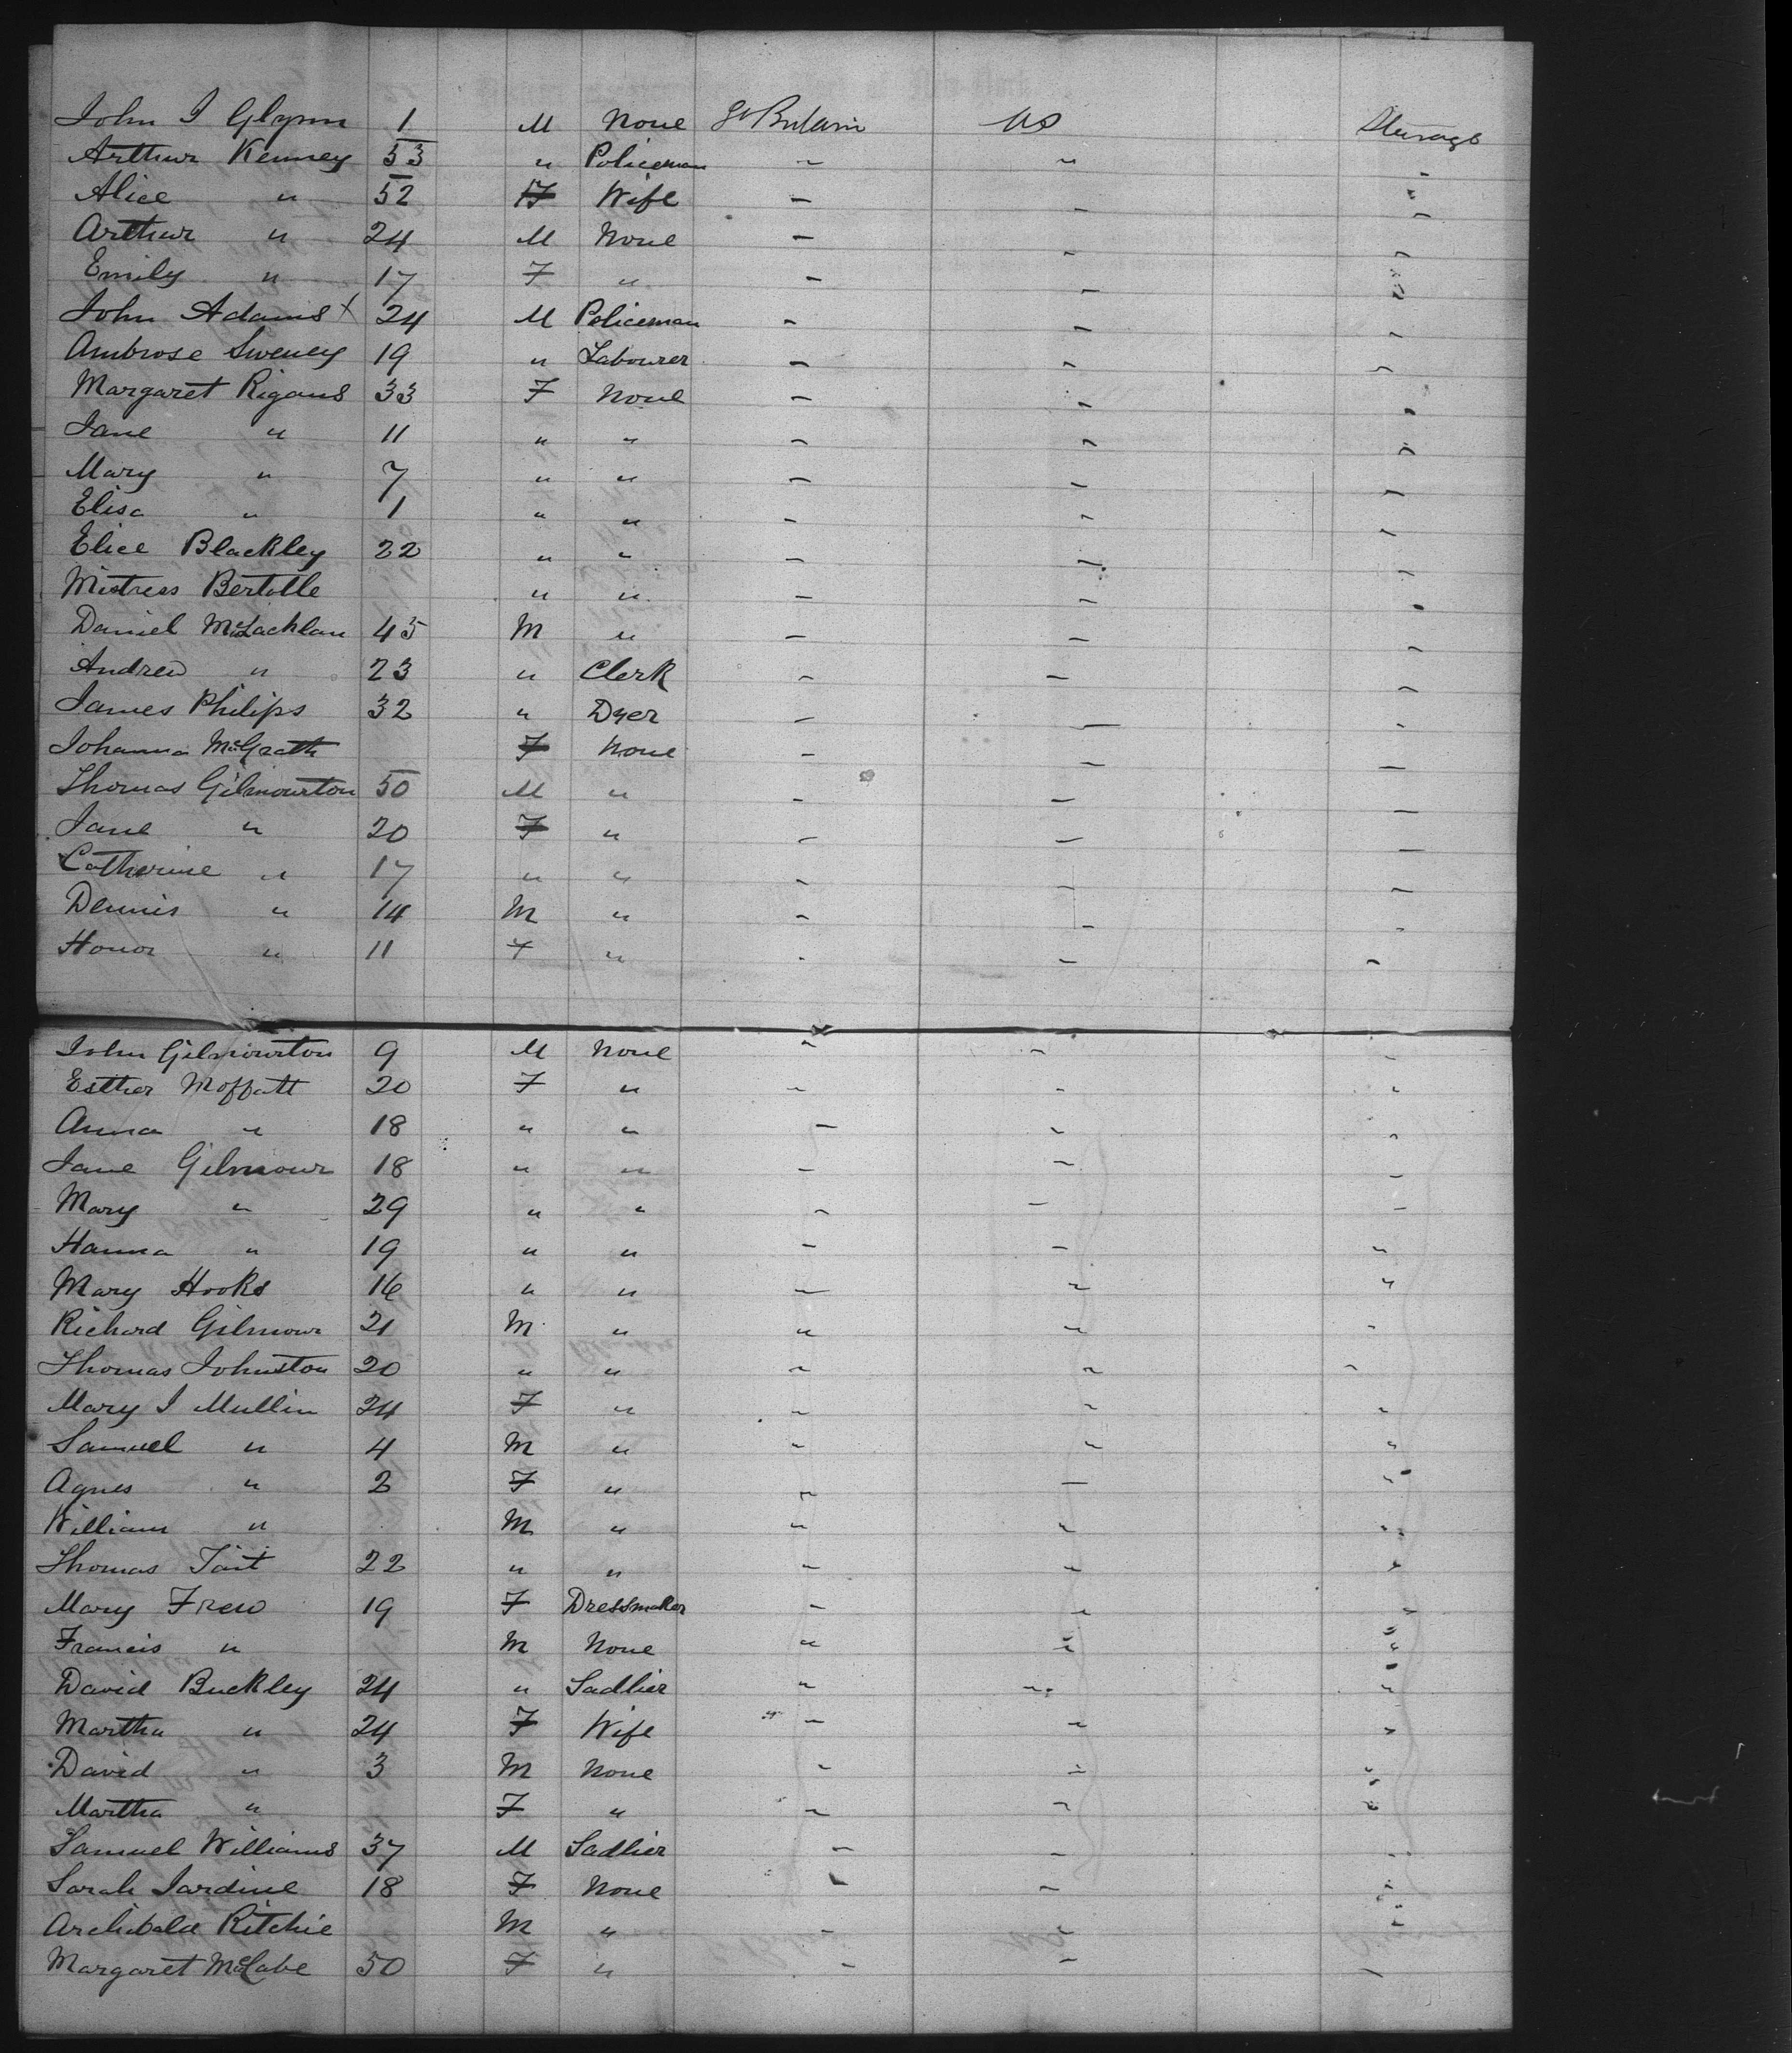 John J Glynn 1 M None Gt Britain US Steerage
Arthur Kenney 53 " Policeman - "
Alice " 52 F Wife - - " -
Arthur " 24 M None - - -
Emily " 17 F " - - "
John Adams x 24 M Policeman - - -
Ambrose Sweney 19 " Labourer - - -
Margaret Rigans 33 F None - - -
Jane " 11 " " - - -
Mary " 7 " " - - -
Elisa " 1 " " - - -
Elice Blackley 22 " " - - -
Mistress Bertolle " " - - -
Daniel McLachlan 45 M " - - -
Andrew " 23 " Clerk - - -
James Philips 32 " Dyer - - -
Johanna McGrath F None - - -
Thomas Gilmourton 50 M " - - -
Jane " 20 F " - - -
Catherine " 17 " " - - -
Dennis " 14 M " - - -
Honor " 11 F " - - -
John Gilmourton 9 M None - - -
Esther Moffatt 20 F " - - -
Anna " 18 " " - - -
Jane Gilmour 18 " " - - -
Mary " 29 " " - - -
Hanna " 19 " " - - "
Mary Hooks 16 " " - " "
Richard Gilmour 21 M " " " -
Thomas Johnston 20 " " " " -
Mary J Mullin 24 F " " " "
Samuel " 4 M " " " "
Agnes " 2 F " " - "
William " M " " " "
Thomas Tait 22 " " - " "
Mary Frew 19 F Dressmaker - " "
Francis " M None " " "
David Buckley 24 " Sadlier " " "
Martha " 24 F Wife " - " "
David " 3 M None " " "
Martha " F " " " "
Samuel Williams 37 M Sadlier - - -
Sarah Jardine 18 F None - - "
Archibald Ritchie M " - " "
Margaret McCabe 50 F " - - -